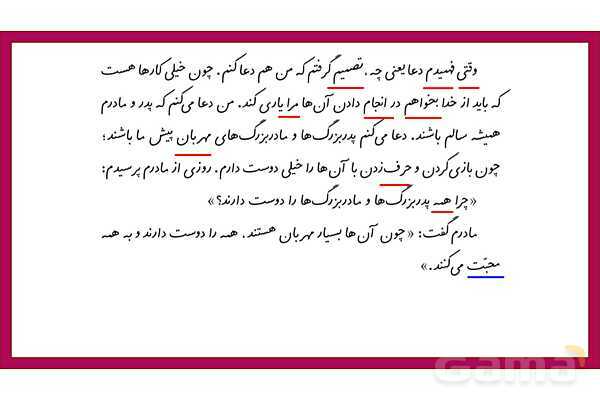 وقتی فهمیدم دعا یعنی چه، تصمیم گرفتم که من هم دعا کنم. چون خیلی کارها هست
که باید از خدا بخواهم در انجام دادن آن‌ها مرا یاری کند. من دعا می‌کنم که پدر و مادرم
همیشه سالم باشند. دعا می‌کنم پدربزرگ‌ها و مادربزرگ‌های مهربان پیش ما باشند؛
چون بازی‌کردن و حرف‌زدن با آن‌ها را خیلی دوست دارم. روزی از مادرم پرسیدم:
«چرا همه پدربزرگ‌ها و مادربزرگ‌ها را دوست دارند؟»
مادرم گفت: «چون آن‌ها بسیار مهربان هستند، همه را دوست دارند و به همه
محبّت می‌کنند.»
Gama